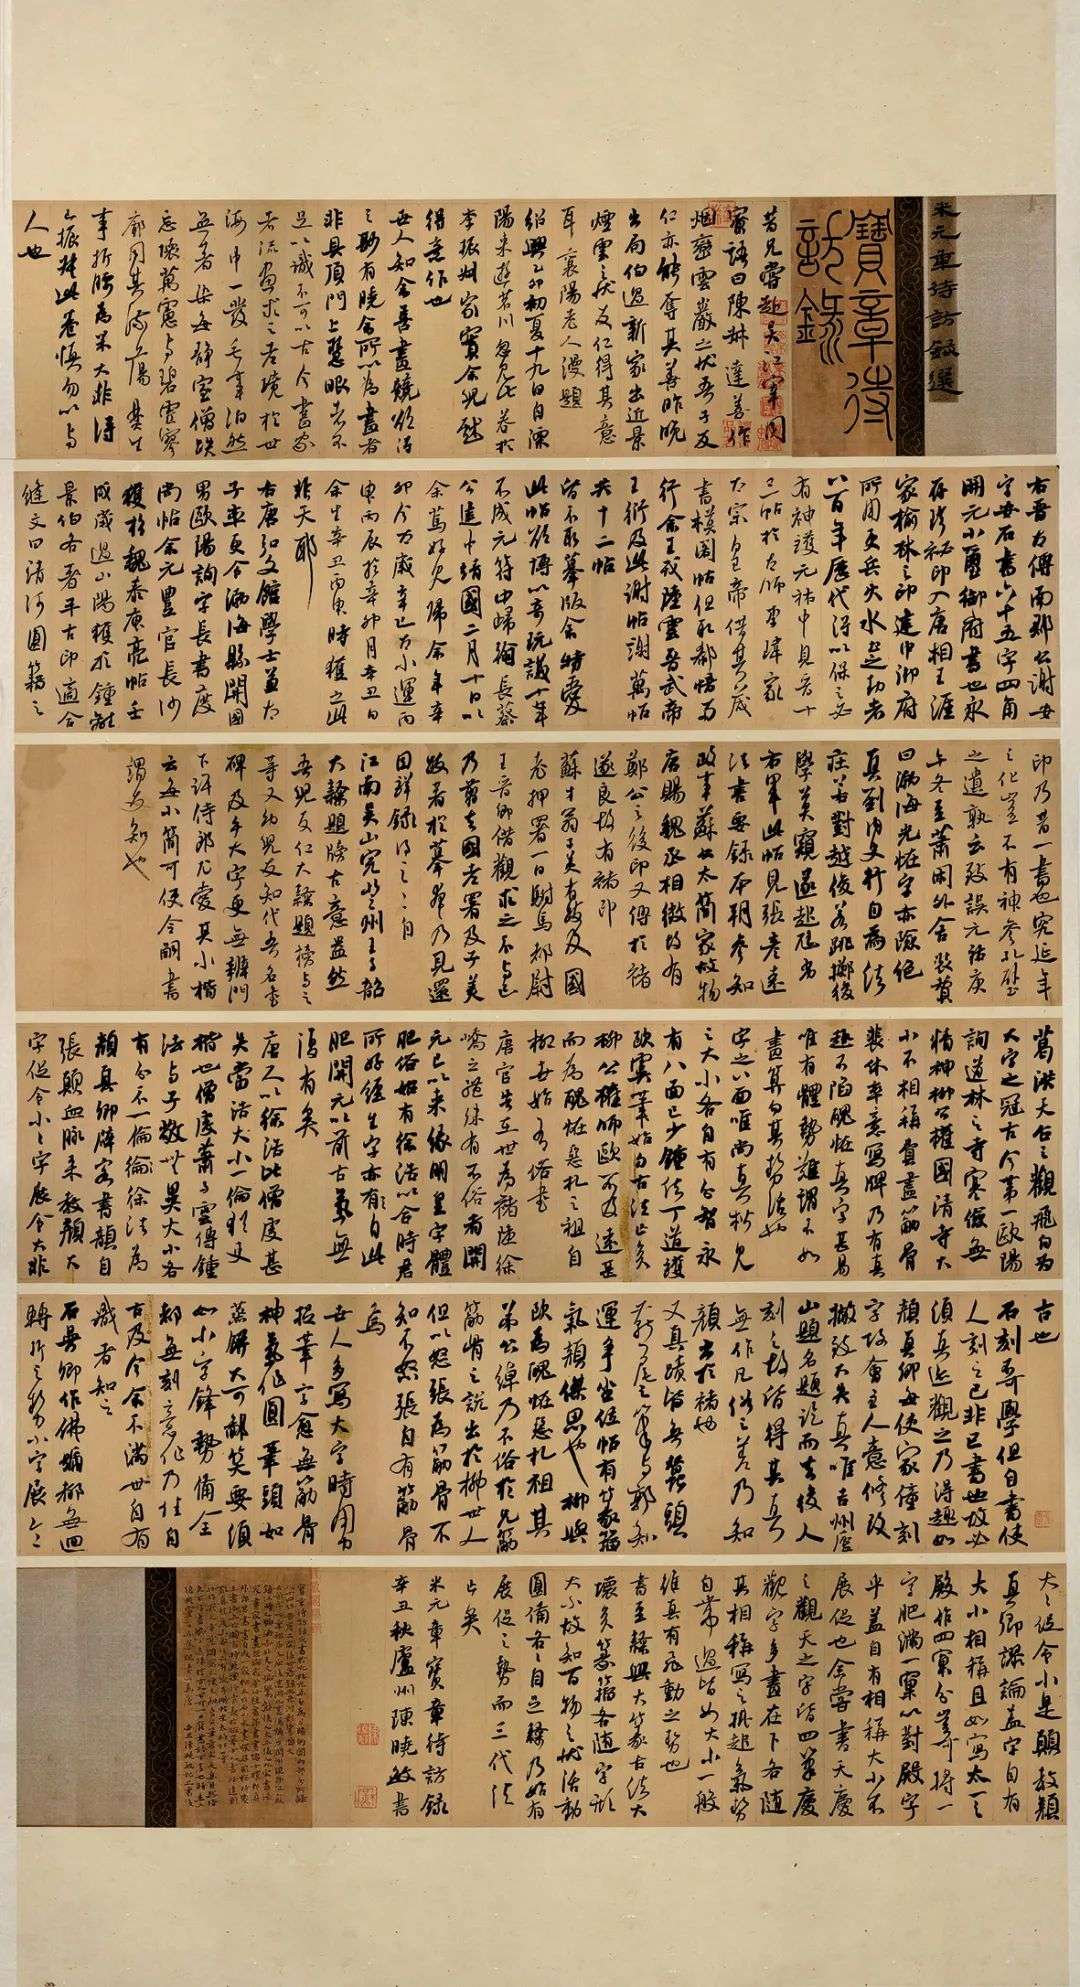 米元章待訪錄選
寶章待
訪錄
昔兄嘗赴吴江軍
語曰陳賡達善作
烟巒雲巖之狀吾子友
仁亦能奪其善昨晚
出局伯過新家出近景
煙雲之狀友仁得其意
耳 襄陽老人漫題
紹興乙卯初夏十九日自溧
陽来遊苕川忽見此卷於
李振叔家實余兒戲
得意作也
世人知余善畫競欲得
之尠有曉余所以為畫者
非具頂門上慧眼者不
足以識不可以古今畫家
者流畫求之老境於世
海中一發毛事泊然
無着染每静室僧趺
忘懷萬慮與碧虚寥
廓同其流蕩 基生
事折腰為米大非得
已振叔此卷慎勿以與
人也
右晉太傅南郡公謝安
字安石書六十五字四角
開元小璽御府書也永
存珍秘印入唐相王涯
家榆林之印建中御府
所用更兵火水土之劫者
八百年歷代得以保之必
有神護元祐中見晉十
三帖於太師李瑋家
太宗皇帝借其藏
書模閣帖但取郗愔两
行余王戎陸雲晉武帝
王衍及此謝帖謝萬帖
共十二帖
皆不取摹版余特愛
此帖欲博以奇玩議十年
不成元符中歸翰長蔡
公建中靖國二月十日以
余篤好見歸余年辛
卯今太歲辛巳大小運丙
申丙辰於辛卯月辛丑日
余生辛丑丙申時獲之此
非天耶
右唐弘文館學士兼太
子率更令渤海縣開國
男歐陽詢字長書度
尚帖余元豐官長沙
獲於魏泰庾亮帖壬
戌歲過山陽獲於鍾離
景伯各著平古印適合
縫文曰清河圖籍之
印乃昔一書也宛延年
之化豈不有神參孔壁
之遺孰云發誤元祐庚
午冬至蕭閑外舍裝贊
曰渤海光怪字亦險絕
真到内史行自為法
莊若對越俊若跳擲後
學莫窺遂趄尫劣
右軍此帖見張彥遠
法書要錄本朝參知
政事蘇公太簡家故物
唐賜魏丞相徵故有
鄭公之後印又傳於褚
遂良故有褚印
蘇才翁子美有跋及國
老押署一日駙馬都尉
王晋卿借觀求之不與已
乃剪去國老署及子美
跋著於摹本乃見還
因詳録得之之自
江南吴皖登州王子韶
大隸題牓古意盎然
吾兒友仁大隸題榜與之
等又幼兒友知代吾名書
碑及手大字更無辨門
下許侍郎尤愛其小楷
云每小簡可使令嗣書
謂友知也
葛洪天台之觀飛白為
大字之冠古今第一歐陽
詢道林之寺寒儉無
精神柳公權國清寺大
小不相稱費盡筋骨
裴休率意寫牌乃有真
趣不陷醜怪真字甚易
唯有體勢難謂不如
畫算匀其勢活也
字之八面唯尚真楷見
之大小各自有分智永
有八面已少鍾法丁道護
歐虞筆始匀古法亡矣
柳公權師歐不及遠甚
而為醜怪惡札之祖自
柳世始有俗書
唐官告在世為褚陸徐
嶠之體殊有不俗者開
元已以来緣明皇字體
肥俗始有徐浩以合時君
所好經生字亦自此
肥開元以前古氣無
復有矣
唐人以徐浩比僧虔甚
失當浩大小一倫猶吏
楷也僧虔蕭子雲傳鍾
法與子敬無異大小各
有分不一倫徐浩為
顔真卿辟客書韻自
張顛血脉来教顔大
字促令小小字展令大非
古也
石刻不可學但自書使
人刻之已非已書也故必
須真迹觀之乃得趣如
顔真卿每使家僮刻
字故會主人意修改
撇致大失真唯吉州廬
山題名題訖而去後人
刻之故皆得其真
無作凡俗之差乃知
顔出於褚也
又真蹟皆無蠶頭
燕尾之筆與郭知
運爭坐位帖有篆籀
氣顔傑思也柳與
歐為醜怪惡札祖其
弟公綽乃不俗於兄筋
骨之說出於柳世人
但以怒張為筋骨不
知不怒張自有筋骨
焉
世人多寫大字時用力
捉筆字愈無筋骨
神氣作圓筆頭如
蒸餅大可鄙笑要須
如小字鋒勢備全
都無刻意作乃佳自
古及今余不滿世自有
識者知之
石曼卿作佛號都無回
轉折之勢小字展令
大大促令小是顛教顔
真卿謬論盖字自有
大小相稱且如寫太一之
殿作四窠分豈可將一
字肥滿一窠以對殿字
乎盖自有相稱大小不
展促也余嘗書天慶
之觀天之字皆四筆慶
觀字多畫在下各隨
其相稱寫之掛起氣勢
自帶過皆如大小一般
雖真有飛動之勢也
書至隸興大篆古法大
壞矣篆籀各隨字形
大小故知百物之狀活動
圓備各各自足隸乃始有
展促之勢而三代法
亡矣
米元章寶章待訪錄
辛丑秋廬州陳曉敏書